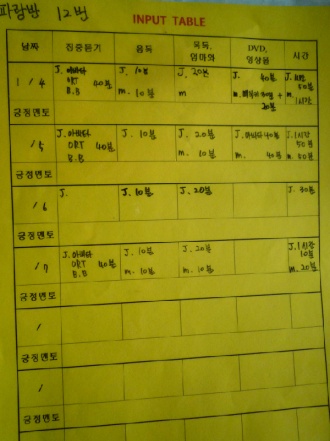 파랑반 12번
INPUT TABLE
날짜 집중듣기 음독 묵독, 엄마와 DVD, 영상물 시간
1/4 J. ORT 40분 B.B J. 10분 m. 10분 J. 20분 m J. 40분 m. + 20분 50분 m. 1시간
긍정멘토
/5 J. ORT 40분 B.B J. 10분 J. 20분 m. 10분 J. 40분 m. 40분 J. 1시간 50분 m. 50분
긍정멘토
/6 J. J. 10분 J. 20분 J. 30분
긍정멘토
/7 J. ORT 40분 B.B J. 10분 m. 10분 J. 20분 m. 10분 J. 1시간 10분 m. 20분
긍정멘토
/
긍정멘토
/
긍정멘토